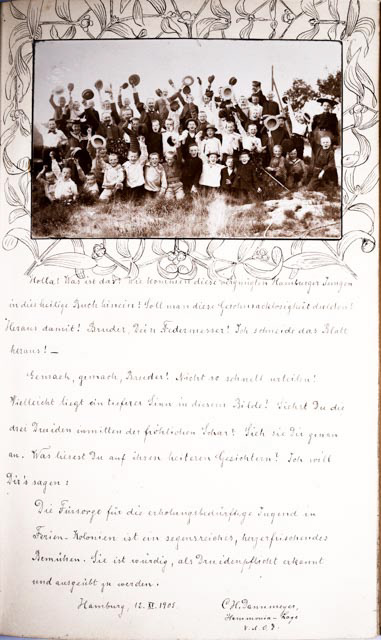 Holla! Was ist das? Wie kommen diese vergnügten Hamburger Jungen
in dies heilige Buch hinein? Soll man diese Geschmacklosigkeit dulden?
Heraus damit! Bruder, Dein Federmesser! Ich schneide das Blatt
heraus! —
Gemach, gemach, Bruder! Nicht so schnell urteilen!
Vielleicht liegt ein tieferer Sinn in diesem Bilde! Siehst Du die
drei Druiden inmitten der fröhlichen Schar? Sieh sie Dir genau
an. Was liesest Du auf ihren heiteren Gesichtern? Ich will
Dir's sagen:
Die Fürsorge für die erholungsbedürftige Jugend in
Ferien-Kolonien ist ein segensreiches, herzerfrischendes
Bemühen. Sie ist würdig, als Druidenpflicht erkannt
und ausgeübt zu werden.
Hamburg, 12. XI. 1905.
C. H. Dannmeyer,
Hammonia-Loge
V. A. O. D.